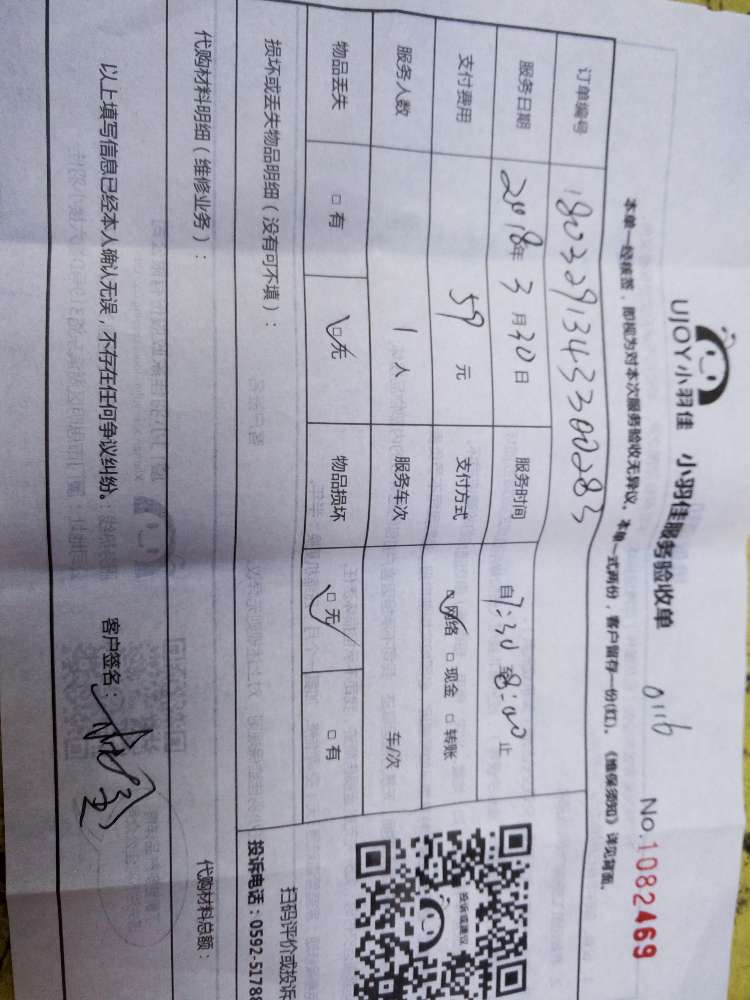 UJOY小羽佳 小羽佳服务验收单 0116 No.1082469
本单一经核签,即视为对本次服务验收无异议。本单一式两份,客户留存一份(红)。《维保须知》详见背面。
订单编号 180329134330283
服务日期 2018年3月30日 服务时间 自7:30至8:00止
支付费用 59元 支付方式 □网络 □现金 □转账
服务人数 1人 服务车次 车/次
物品丢失 □有 □无 物品损坏 □无 □有
损坏或丢失物品明细(没有可不填):
投诉或建议
扫码评价或投诉
投诉电话:0592-5178
代购材料明细(维修业务): 代购材料总额:
以上填写信息已经本人确认无误,不存在任何争议纠纷。 客户签名: